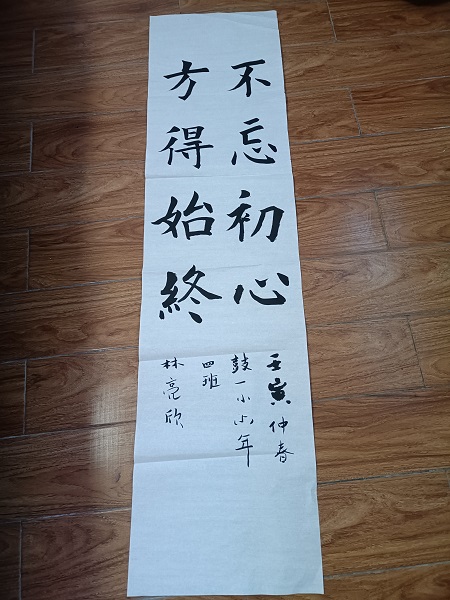 不忘初心
方得始終
壬寅仲春
鼓一小六年
四班
林亮欣